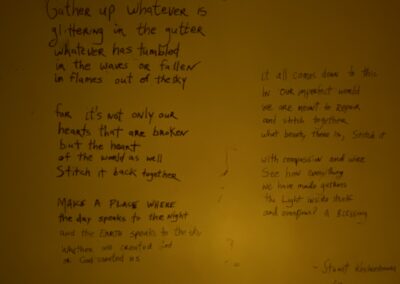 Gather up whatever is
glittering in the gutter
whatever has tumbled
in the waves or fallen
in flames out of the sky
for it's not only our
hearts that are broken
but the heart
of the world as well
Stitch it back together
MAKE A PLACE WHERE
the day speaks to the night
and the EARTH speaks to the sky
whether we created God
or God created us
it all comes down to this
In our imperfect world
we are meant to repair
and stitch together
what beauty there is, stitch it
with compassion and wire
See how everything
we have made gathers
the Light inside itself
and overflows? A Blessing
- Stuart